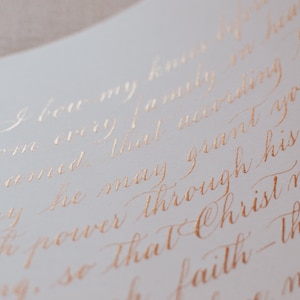 I bow my knees before
om every family in hea
amed that according
y he may grant yo
h power through his
ng, so that Christ m
faith—th